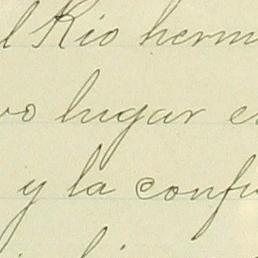 l Rio herm
vo lugar e
y la confu